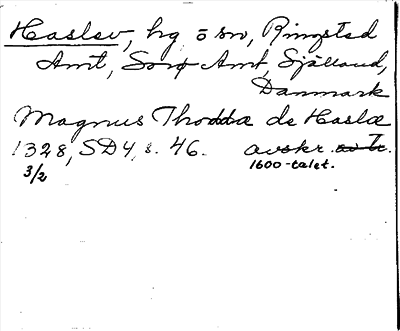 Haslev, hg ō sn, Ringsted
Amt, Sorø Amt, Sjælland,
Danmark
Magnus Thoddæ de Haslæ
1328, SD4, s. 46. avskr. av Tr.
3/2 1600-talet.